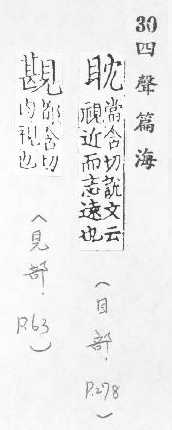 30 四聲篇海
眈 當含切說文云
視近而志遠也
(目部. P.278)
䚂 都含切
內視也
(見部. P.63)